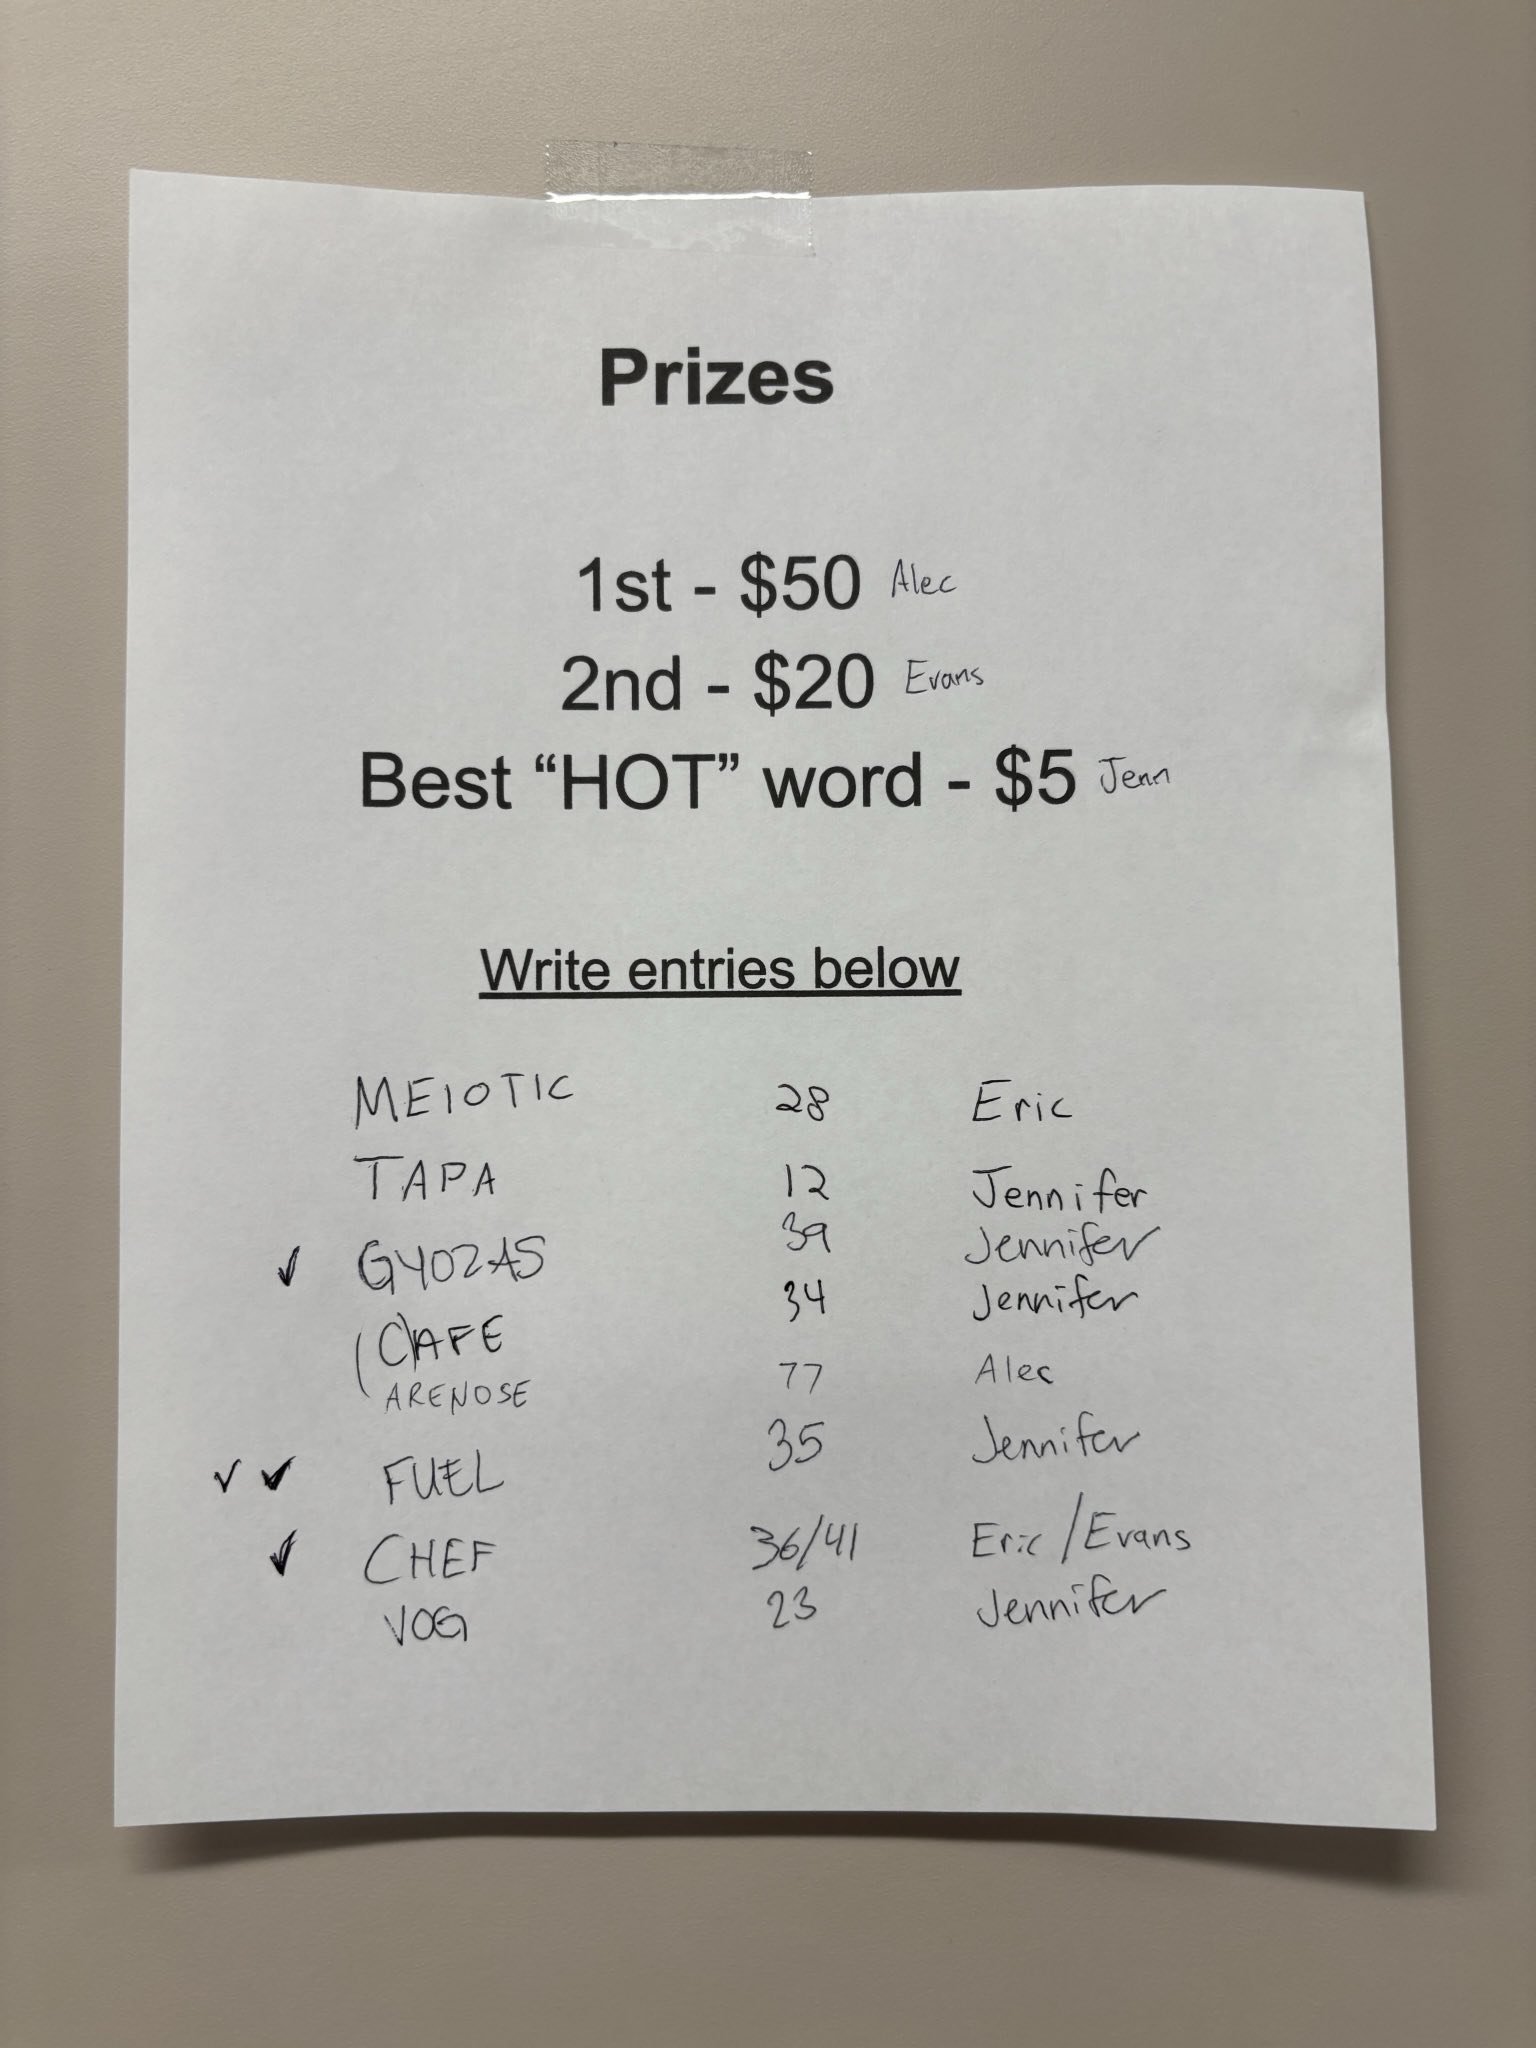 Prizes
1st - $50 Alec
2nd - $20 Evans
Best “HOT” word - $5 Jenn
Write entries below
MEIOTIC 28 Eric
TAPA 12 Jennifer
✓ GYOZAS 39 Jennifer
(C)AFE 34 Jennifer
ARENOSE 77 Alec
✓ ✓ FUEL 35 Jennifer
✓ CHEF 36/41 Eric/Evans
VOG 23 Jennifer